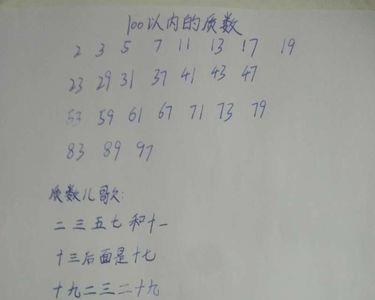 100以内的质数
2 3 5 7 11 13 17 19
23 29 31 37 41 43 47
53 59 61 67 71 73 79
83 89 97
质数儿歌:
二三五七和十一
十三后面是十七
十九二三二十九